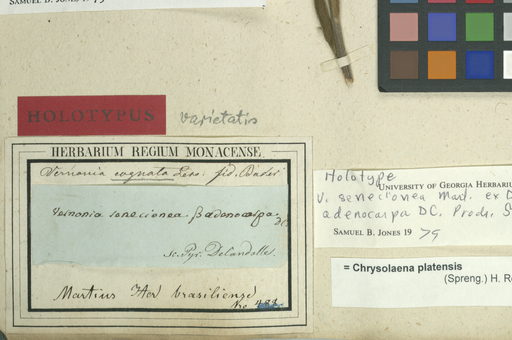 SAMUEL B. JONES 19 79
HOLOTYPUS varietatis
HERBARIUM REGIUM MONACENSE.
Vernonia cognata Less. fid. Baker
Vernonia senecionea β adenocarpa. DC
sc. Pyr. Delandolle.
Martius Iter brasiliense
Nro.
Holotype
UNIVERSITY OF GEORGIA HERBARIU
V. senecionea Mart. ex D
adenocarpa DC. Prodr. 5
SAMUEL B. JONES 19 79
= Chrysolaena platensis
(Spreng.) H. Ro